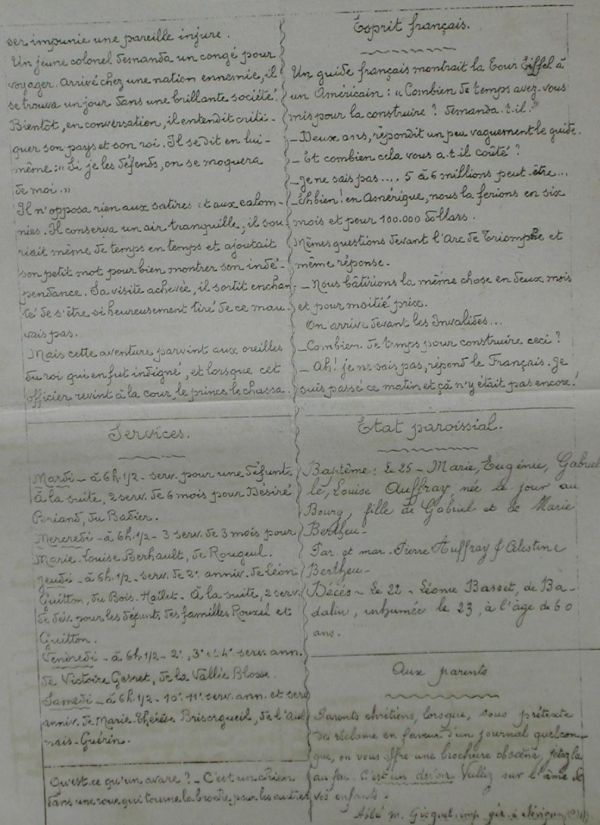 ser impunie une pareille injure.
Un jeune colonel demanda un congé pour
voyager. Arrivé chez une nation ennemie, il
se trouva un jour dans une brillante société.
Bientôt, en conversation, il entendit criti-
quer son pays et son roi. Il se dit en lui-
même: "Si je les défends, on se moquera
de moi."
Il n'opposa rien aux satires et aux calom-
nies. Il conserva un air tranquille, il sou
riait même de temps en temps et ajoutait
son petit mot pour bien montrer son indé-
pendance. Sa visite achevée, il sortit enchan
té de s'être si heureusement tiré de ce mau
vais pas.
Mais cette aventure parvint aux oreilles
du roi qui en fut indigné, et lorsque cet
officier revint à la cour, le prince le chassa.
Services.
Mardi - à 6h. 1/2 - serv. pour une défunte
à la suite, 2 serv. de 6 mois pour Désiré
Briand, du Badier.
Mercredi - à 6h. 1/2 - 3 serv. de 3 mois pour
Marie-Louise Berhault, de Rougeul.
Jeudi - à 6h. 1/2 - serv. de 2e anniv. de Léon
Guitton, du Bois-Hallet. À la suite, 2 serv.
pour les défunts des familles Rouxel et
Guitton.
Vendredi - à 6h. 1/2 - 2e, 3e et 4e serv. ann.
de Victoire de la Vallée
Samedi - à 6h. 1/2 - 10e 11e serv. ann. et serv
anniv. de Marie-Thérèse de l'Aul
nais-Guérin.
Qu'est-ce qu'un avare? - C'est un chien
dans une roue, qui tourne la broche pour les autres
Esprit français.
Un guide français montrait la Tour Eiffel à
un Américain: "Combien de temps avez-vous
mis pour la construire? demanda-t-il."
- Deux ans, répondit un peu vaguement le guide.
- Et combien cela vous a-t-il coûté?
- Je ne sais pas.... 5 à 6 millions peut-être...
- Eh bien! en Amérique, nous la ferions en six
mois et pour 100.000 dollars.
Mêmes questions devant l'Arc de Triomphe et
même réponse.
- Nous bâtirions la même chose en deux mois
et pour moitié prix.
On arrive devant les Invalides...
- Combien de temps pour construire ceci?
- Ah! je ne sais pas, répond le Français. Je
suis passé ce matin et çà n'y était pas encore!
Etat paroissial.
Baptême: Le 25 - Marie, Eugénie, Gabriel
le, Louise Auffray née le jour au
Bourg, fille de Gabriel et de Marie
Bertheu-
Par. et mar. Pierre Auffray & Célestine
Bertheu-
Décès - Le 22 - Léonie Basset, de Ba-
dalin, inhumée le 23, à l'âge de 60
ans.
Aux parents
Parents chrétiens, lorsque, sous prétexte
de réclame en faveur d'un journal quelcon-
que, on vous offre une brochure obscène,
au feu. C'est un devoir. Veillez sur l'âme de
vos enfants.
Abbé M. Gicquel imp. gér. à